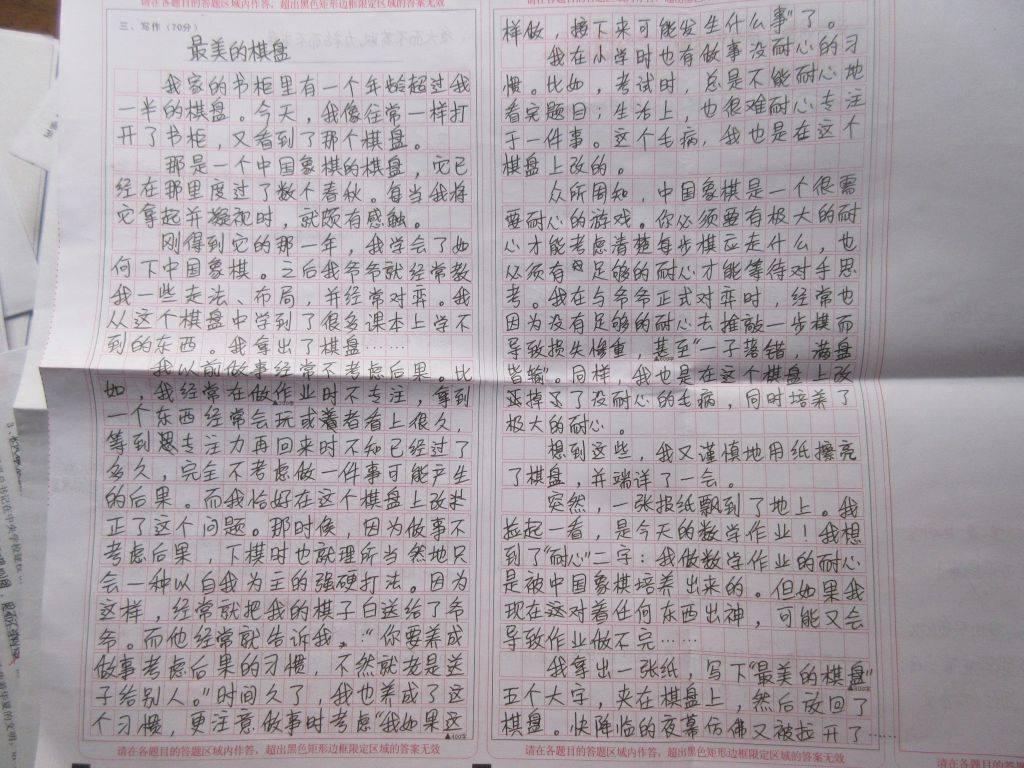 请在各题目的答题区域内作答，超出黑色矩形边框限定区域的答案无效
三、写作（70分）
最美的棋盘
我家的书柜里有一个年龄超过我
一半的棋盘。今天，我像往常一样打
开了书柜，又看到了那个棋盘。
那是一个中国象棋的棋盘，它已
经在那里度过了数个春秋。每当我将
它拿起并凝视时，就颇有感触。
刚得到它的那一年，我学会了如
何下中国象棋。之后我爷爷就经常教
我一些走法、布局，并经常对弈。我
从这个棋盘中学到了很多课本上学不
到的东西。我拿出了棋盘……
我以前做事经常不考虑后果。比
如，我经常在做作业时不专注，拿到
一个东西经常会玩或者看上很久，
等到专注力再回来时不知已经过了
多久，完全不考虑做一件事可能产生
的后果。而我恰好在这个棋盘上改
正了这个问题。那时候，因为做事不
考虑后果 下棋时也就理所当然地只
会一种以自我为主的强硬打法。因为
这样，经常就把我的棋子白送给了爷
爷。而他经常就告诉我：“你要养成
做事考虑后果的习惯，不然就老是送
子给别人。”时间久了，我也养成了这
个习惯，更注意做事时考虑“我如果这
▲400字
请在各题目的答题区域内作答，超出黑色矩形边框限定区域的答案无效
请在各题目的答题区域内作答，超出黑色矩形边框限定区域的答案无效
样做，接下来可能发生什么事”了。
我在小学时也有做事没耐心的习
惯。比如，考试时，总是不能耐心地
看完题目；生活上，也很难耐心专注
于一件事。这个毛病，我也是在这个
棋盘上改的。
众所周知，中国象棋是一个很需
要耐心的游戏。你必须要有极大的耐
心才能考虑清楚每步棋应走什么，也
必须有足够的耐心才能等待对手思
考。我在与爷爷正式对弈时，经常也
因为没有足够的耐心去推敲一步棋而
导致损失惨重，甚至“一子落错，满盘
皆输”。同样，我也是在这个棋盘上改
掉了没耐心的毛病，同时培养了
极大的耐心。
想到这些，我又谨慎地用纸擦亮
了棋盘，并端详了一会。
突然，一张报纸飘到了地上。我
捡起一看，是今天的数学作业！我想
到了“耐心”二字：我做数学作业的耐心
是被中国象棋培养出来的。但如果我
现在这对着任何东西出神，可能又会
导致作业做不完……
我拿出一张纸，写下“最美的棋盘”
▲800字
五个大字，夹在棋盘上，然后放回了
棋盘。快降临的夜幕仿佛又被拉开了……
请在各题目的答题区域内作答，超出黑色矩形边框限定区域的答案无效
请在各题目的答题区域内作答，超出黑色矩形边框限定